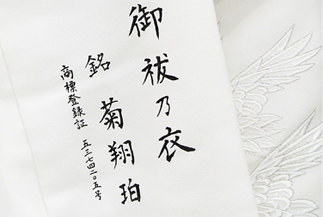 御祓乃衣
銘 菊翔珀
商標登録証 五三七四二〇五号